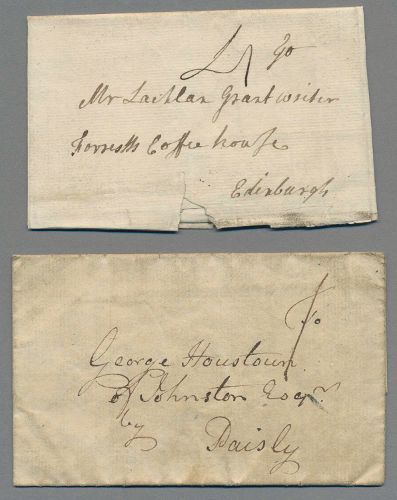 To
Mr Lachlan Grant writer
Forrests Coffee house
Edinburgh
To
George Houstoun
of Johnston Esqr.
by
Paisly